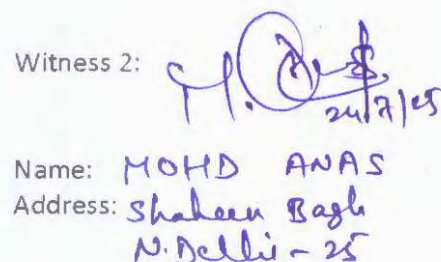 Witness 2:
24/7/25
Name: MOHD ANAS
Address: Shaheen Bagh
N. Delhi - 25